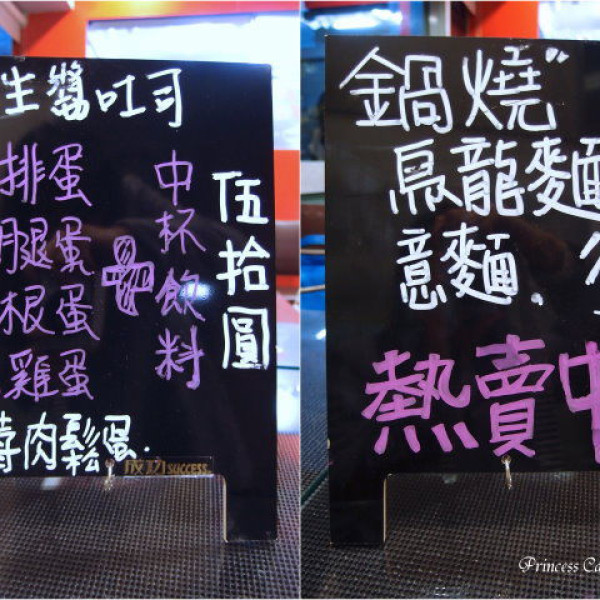 生醬吐司
排蛋
腿蛋
根蛋
雞蛋
中杯飲料
伍拾圓
肉鬆蛋.
成功 SUCCESS
鍋燒"
烏龍麵
意麵、
熱賣中
Princess Ca